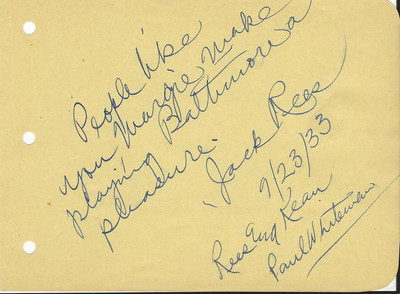 People like
you Margie make
playing Baltimore a
pleasure.
Jack Rees
9/23/33
Rees and Kean
Paul Whiteman